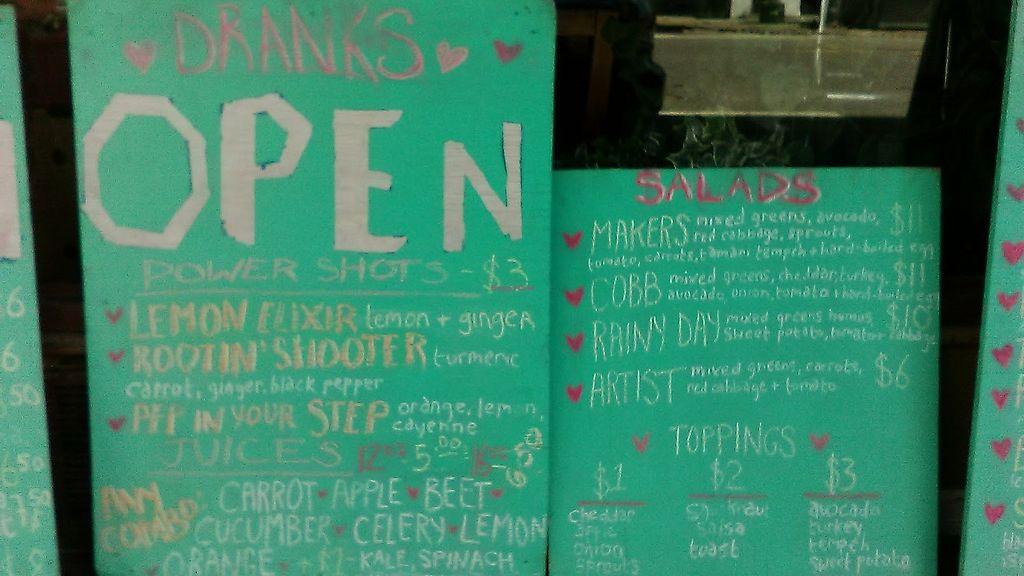 DRANKS
OPEN
POWER SHOTS - $3
LEMON ELIXIR lemon + ginger
ROOTIN' SHOOTER turmeric
carrot, ginger, black pepper
PEP IN YOUR STEP orange, lemon,
cayenne
JUICES 12oz 5.00 16oz 6.50
ANY COMBO
CARROT APPLE BEET
CUCUMBER CELERY LEMON
ORANGE + $1 - KALE, SPINACH
SALADS
MAKERS mixed greens, avocado, $11
red cabbage, sprouts,
tomato, carrots, tamari tempeh + hard-boiled egg
COBB mixed greens, cheddar, turkey, $11
avocado, onion, tomato + hard-boiled egg
RAINY DAY mixed greens humus $10
sweet potato, tomato cabbage
ARTIST mixed greens, carrots, $6
red cabbage + tomato
TOPPINGS
$1
cheddar
onion
sprouts
$2
kraut
salsa
toast
$3
avocado
turkey
tempeh
sweet potato
6
6
50
.50